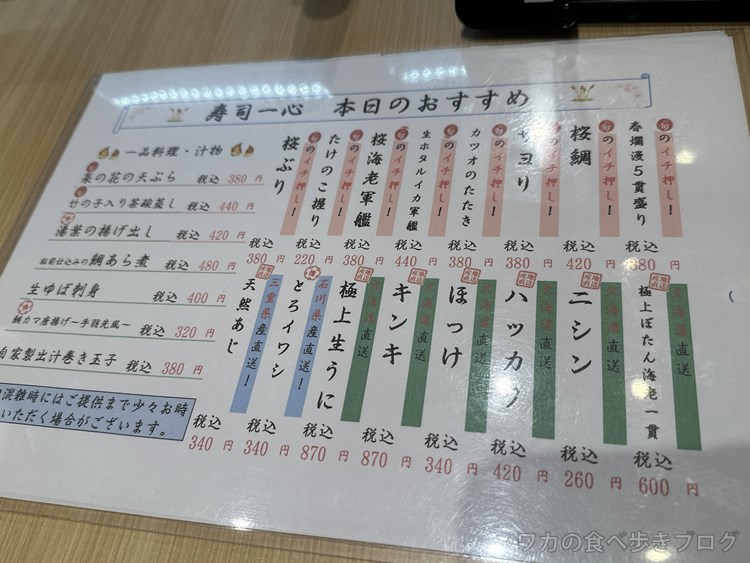 寿司一心 本日のおすすめ
旬のイチ押し!
春爛漫5貫盛り
税込
円
旬のイチ押し!
桜鯛
税込
420円
旬のイチ押し!
サヨリ
税込
380円
旬のイチ押し!
カツオのたたき
税込
380円
旬のイチ押し!
生ホタルイカ軍艦
税込
440円
旬のイチ押し!
桜海老軍艦
税込
380円
旬のイチ押し!
たけのこ握り
税込
220円
旬のイチ押し!
桜ぶり
税込
380円
北海道直送
極上ぼたん海老一貫
税込
600円
北海道直送
ニシン
税込
260円
北海道直送
ハッカク
税込
420円
北海道直送
ほっけ
税込
340円
北海道直送
キンキ
税込
870円
北海道直送
極上生うに
税込
870円
石川県産直送!
とろイワシ
税込
340円
三重県産直送!
天然あじ
税込
340円
一品料理・汁物
菜の花の天ぷら 税込 380円
竹の子入り茶碗蒸し 税込 440円
湯葉の揚げ出し 税込 420円
仕込みの鯛あら煮 税込 480円
生ゆば刺身 税込 400円
鯛カマ唐揚げ~手羽先風~ 税込 320円
自家製出汁巻き玉子 税込 380円
混雑時にはご提供まで少々お時
いただく場合がございます。
ワカの食べ歩きブログ